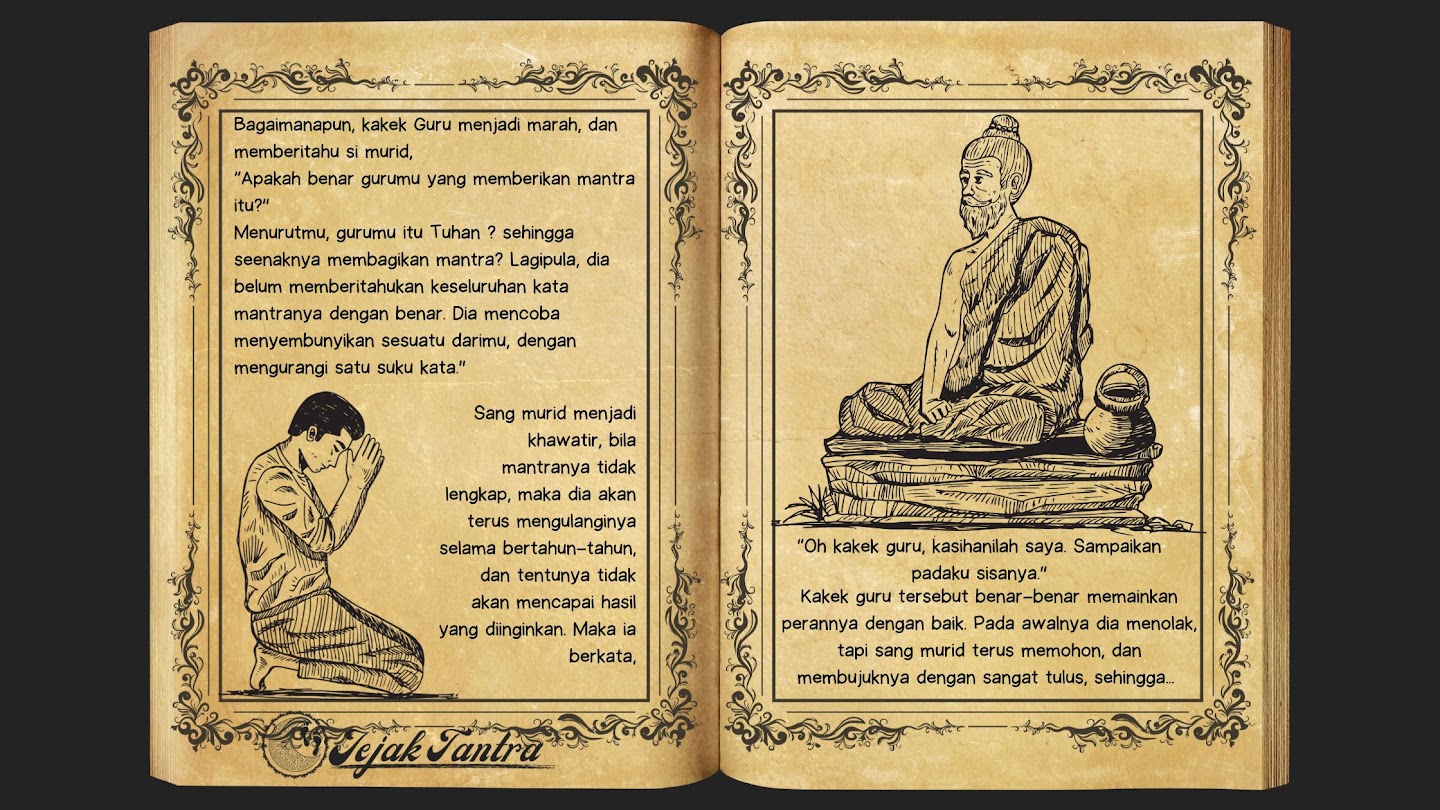 Bagaimanapun, kakek Guru menjadi marah, dan
memberitahu si murid,
"Apakah benar gurumu yang memberikan mantra
itu?"
Menurutmu, gurumu itu Tuhan ? sehingga
seenaknya membagikan mantra? Lagipula, dia
belum memberitahukan keseluruhan kata
mantranya dengan benar. Dia mencoba
menyembunyikan sesuatu darimu, dengan
mengurangi satu suku kata."
Sang murid menjadi
khawatir, bila
mantranya tidak
lengkap, maka dia akan
terus mengulanginya
selama bertahun-tahun,
dan tentunya tidak
akan mencapai hasil
yang diinginkan. Maka ia
berkata,
Jejak Tantra
"Oh kakek guru, kasihanilah saya. Sampaikan
padaku sisanya."
Kakek guru tersebut benar-benar memainkan
perannya dengan baik. Pada awalnya dia menolak,
tapi sang murid terus memohon, dan
membujuknya dengan sangat tulus, sehingga...